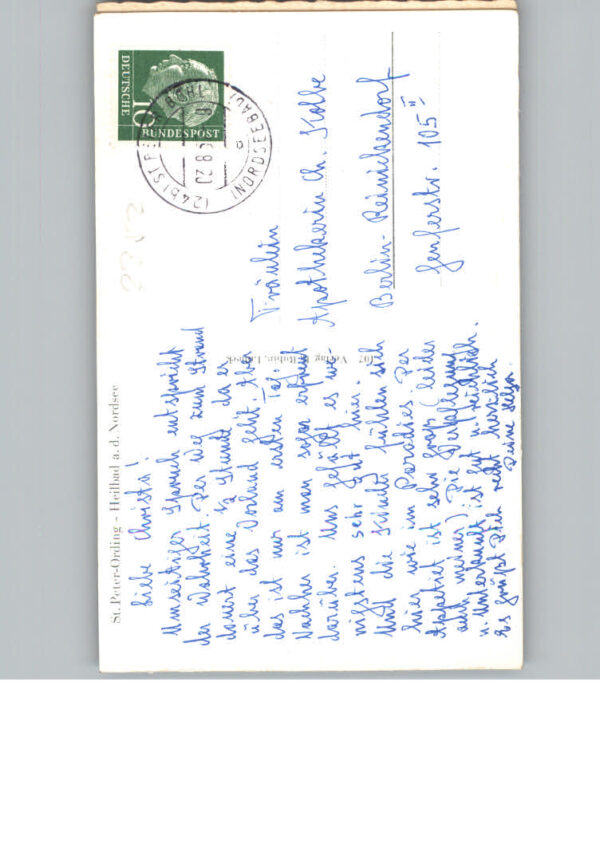 St. Peter-Ording - Heilbad a. d. Nordsee
Liebe Christa!
Umseitiger Spruch entspricht
der Wahrheit. Der Weg zum Strand
dauert eine 1/2 Stunde da er
über das Vorland geht. Aber
das ist nur am ersten Tag.
Nachher ist man sogar erfreut
darüber. Uns gefällt es we-
nigstens sehr gut hier.
Und die Kinder fühlen sich
hier wie im Paradies. Der
Appetit ist sehr groß (leider
auch meiner). Die Verpflegung
u. Unterkunft ist gut u. reichlich.
Es grüßt Dich recht herzlich
Deine
107 Verlag Rubin, Lübeck
DEUTSCHE
BUNDESPOST
10
(24b) ST. PETER
(NORDSEEBAD)
Fräulein
Apothekerin Ch. Kolbe
Berlin-Reinickendorf
Genferstr. 105 II